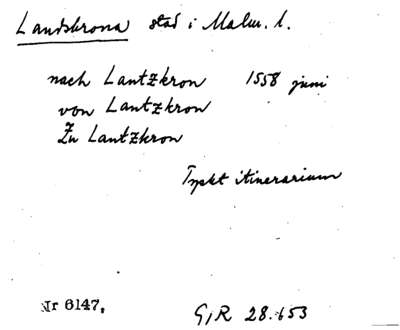 Landskrona stad i Malm. l.
nach Lantzkron 1558 juni
von Lantzkron
Zu Lantzkron
Tyskt itinerarium
Nr 6147,
G,R 28.653